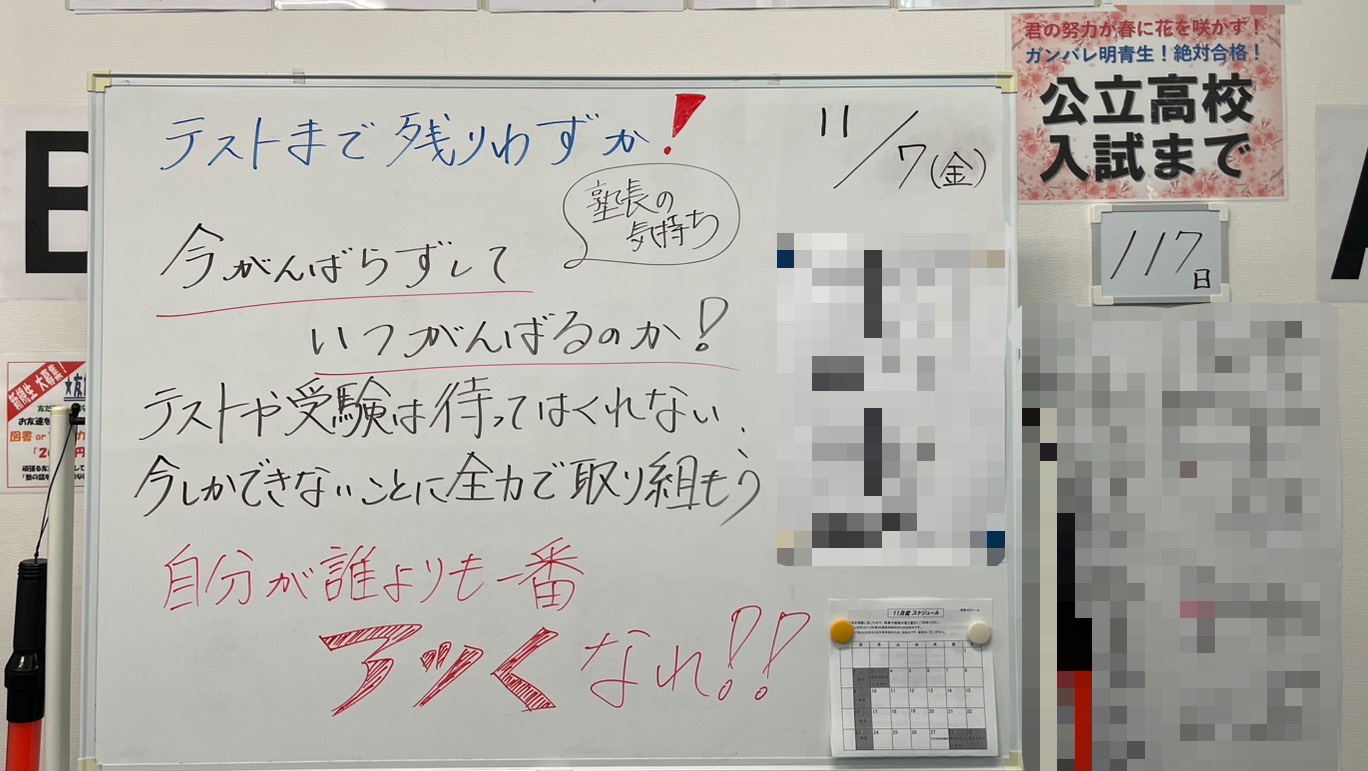 テストまで残りわずか!
11/7(金)
塾長の
気持ち
今がんばらずして
いつがんばるのか!
テストや受験は待ってはくれない、
今しかできないことに全力で取り組もう
自分が誰よりも一番
アツくなれ!!
君の努力が春に花を咲かす!
ガンバレ明青生!絶対合格!
公立高校
入試まで
117日
新規生大募集!
11月度 スケジュール